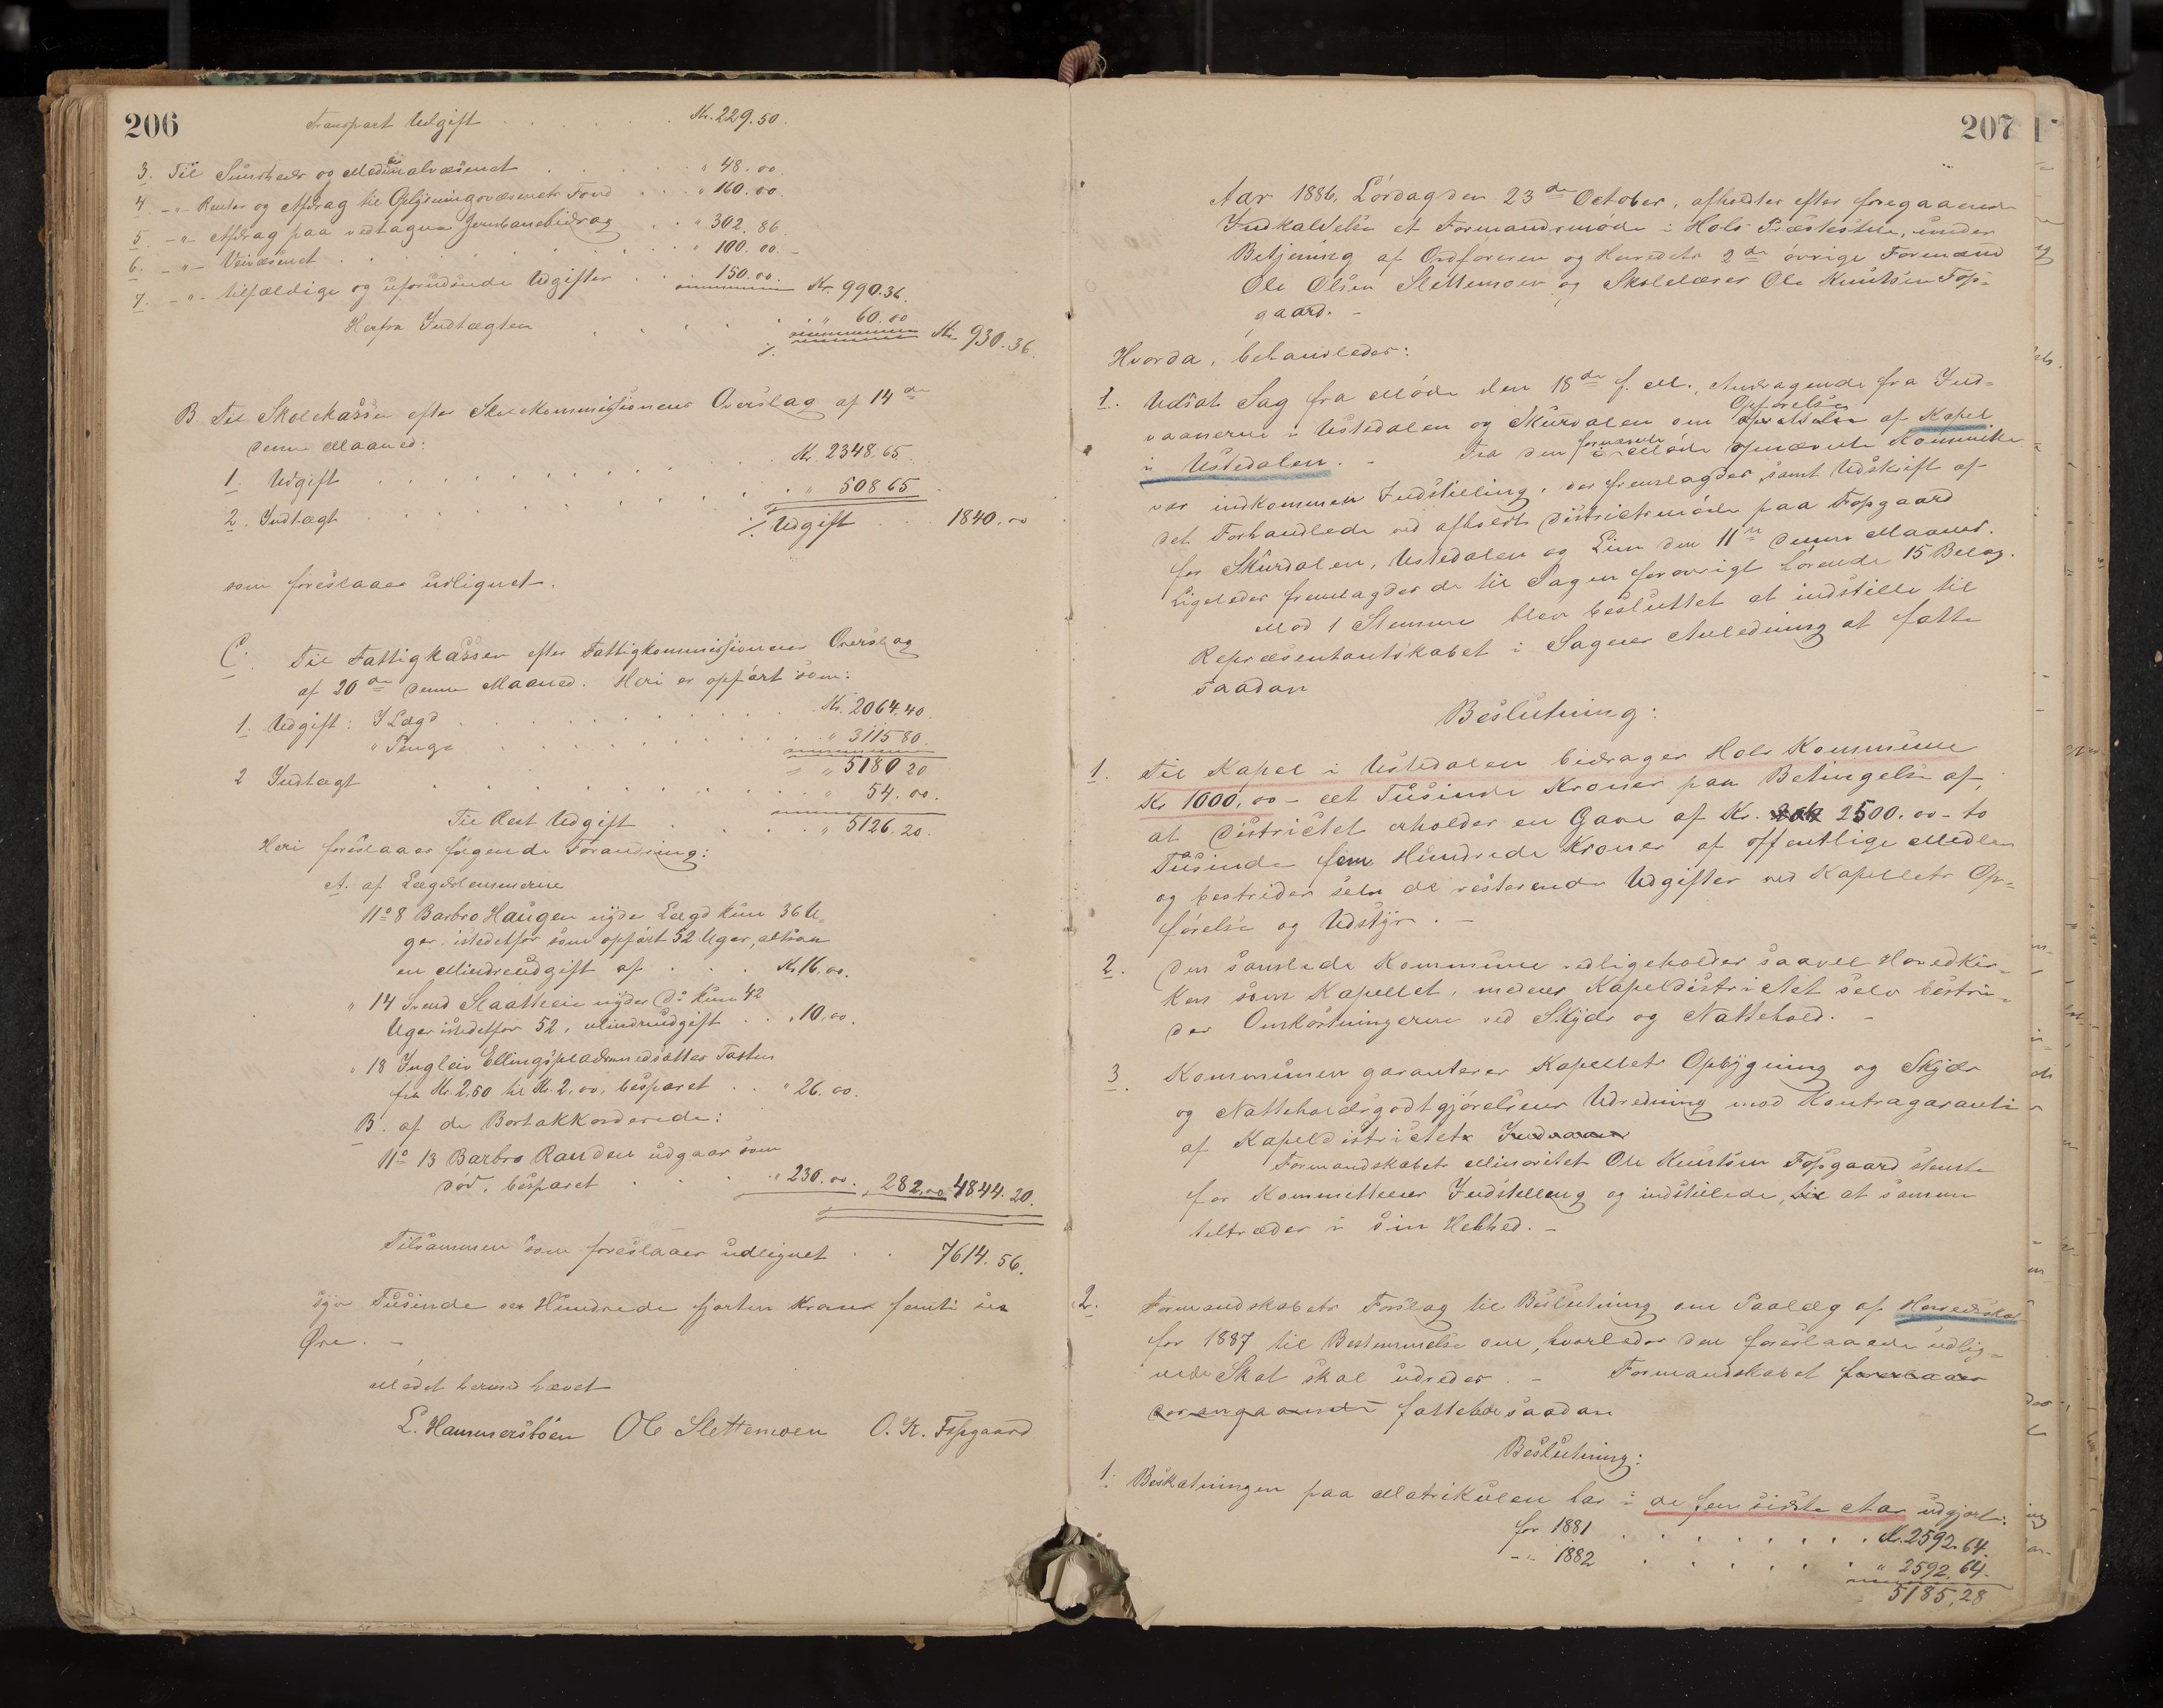 206
Transport Udgift . . . . . . Kr. 229.50.
3. Til Sundheds og Medicinalvæsenet . . . . " 48.00
4. -"- Renter og Afdrag til Oplysningsvæsenets Fond . . . " 160.00.
5. -"- Afdrag paa vedtagne Jernbanebidrag . . " 302.86
6. -"- Veivæsenet . . . . . . . " 100.00. -
7. -"- tilfældige og uforudsede Udgifter . . . 150.00. Kr. 990.36.
Herfra Indtægten . . . . . " 60.00
./. Kr. 930.36.
B. Til Skolekassen efter Skolekommissionens Overslag af 14de
denne Maaned:
1. Udgift . . . . . . . . . . Kr. 2348.65.
2. Indtægt . . . . . . . . . . " 508 65
./. Udgift . . . 1840.00
som foreslaaes udlignet.
C. Til Fattigkassen efter Fattigkommissionens Overslag
af 20de denne Maaned. Heri er opført som:
1. Udgift: I Lægd . . . . . . . . Kr. 2064.40.
" Penge . . . . . . . . . " 3115 80.
" 5180 20
2 Indtægt . . . . . . . . . . " 54.00.
Til Rest Udgift . . . . . " 5126.20.
Heri foreslaaes følgende Forandring:
A. af Lægdslemmerne
No 8 Barbro Haugen nyde Lægd kun 36 U-
ger istedetfor som opført 52 Uger, altsaa
en Mindreudgift af . . . Kr. 16.00.
" 14 Svend Slaattelie nyder Do kun 42
Uger istedetfor 52, Mindreudgift . . " 10.00.
" 18 Ingleiv Ellingsplads nedsættes Taxten
fra Kr. 2,60 til Kr. 2,00, besparet . . " 26.00.
B. af de Bortakkorderede:
No 13 Barbro Randen udgaar som
død, besparet . . . . " 230.00. " 282.00 4844.20.
Tilsammen som foreslaaes udlignet . . 7614.56.
syv Tusinde sex Hundrede fjorten Kroner femti sex
Øre. -
Mødet hermed hævet
L. Hammersbøen Ole Slettemoen O. K. Fopgaard
207
Aar 1886, Lørdag den 23de October, afholdtes efter foregaaende
Indkaldelse et Formandsmøde i Hols Præstestue, under
Betjening af Ordføreren og Herredets 2de øvrige Formænd
Ole Olsen Slettemoen og Skolelærer Ole Knutsen Fop-
gaard. -
Hvorda, behandledes:
1. Udsat Sag fra Møde den 18de f. M., Andragende fra Ind-
vaanerne i Ustedalen og Skurdalen om Opførelse af Kapel
i Ustedalen. - Fra den i formænds Møde opnævnte Kommitte
var indkommen Indstilling, der fremlagdes, samt Udskrift af
det Forhandlede ved afholdt Districtsmøde paa Fopgaard
for Skurdalen, Ustedalen og Lien den 11te denne Maaned.
Ligeledes fremlagdes de til Sagen forøvrigt hørende 15 Bilag.
Mod 1 Stemme blev besluttet at indstille til
Repræsentantskabet i Sagens Anledning at fatte
saadan
Beslutning:
1. Til Kapel i Ustedalen bidrager Hols Kommune
Kr 1000,00 - et Tusinde Kroner paa Betingelse af,
at Districtet erholder en Gave af Kr. 2500.00 - to
Tusinde fem Hundrede Kroner af offentlige Midler
og bestrider selv de resterende Udgifter ved Kapellets Op-
førelse og Udstyr. -
2. Den samlede Kommune vedligeholder saavel Hovedkir-
ken som Kapellet, medens Kapeldistrictet selv bestri-
der Omkostningerne ved Skyds og Nattehold. -
3. Kommunen garanterer Kapellets Opbygning og Skyds
og Natteholdsgodtgjørelsens Udredning mod Kontragaranti
af Kapeldistrictet Indvaaner
Formandskabets Minoritet Ole Knutsen Fopgaard stemte
for Kommitteens Indstilling og indstillede, til at samme
tiltrædes i sin Helhed. -
2. Formandskabets Forslag til Beslutning om Paalæg af Herredsskat
for 1887 til Bestemmelse om, hvorledes den foreslaaede udlig-
nede Skat skal udredes. - Formandskabet foreslaaer
desangaaende fattede saadan
Beslutning:
1. Beskatningen paa Matrikulen har i de fem sidste Aar udgjort:
for 1881 . . . . . . . . Kr. 2592.64.
-"- 1882 . . . . . . . " 2592.64.
5185,28